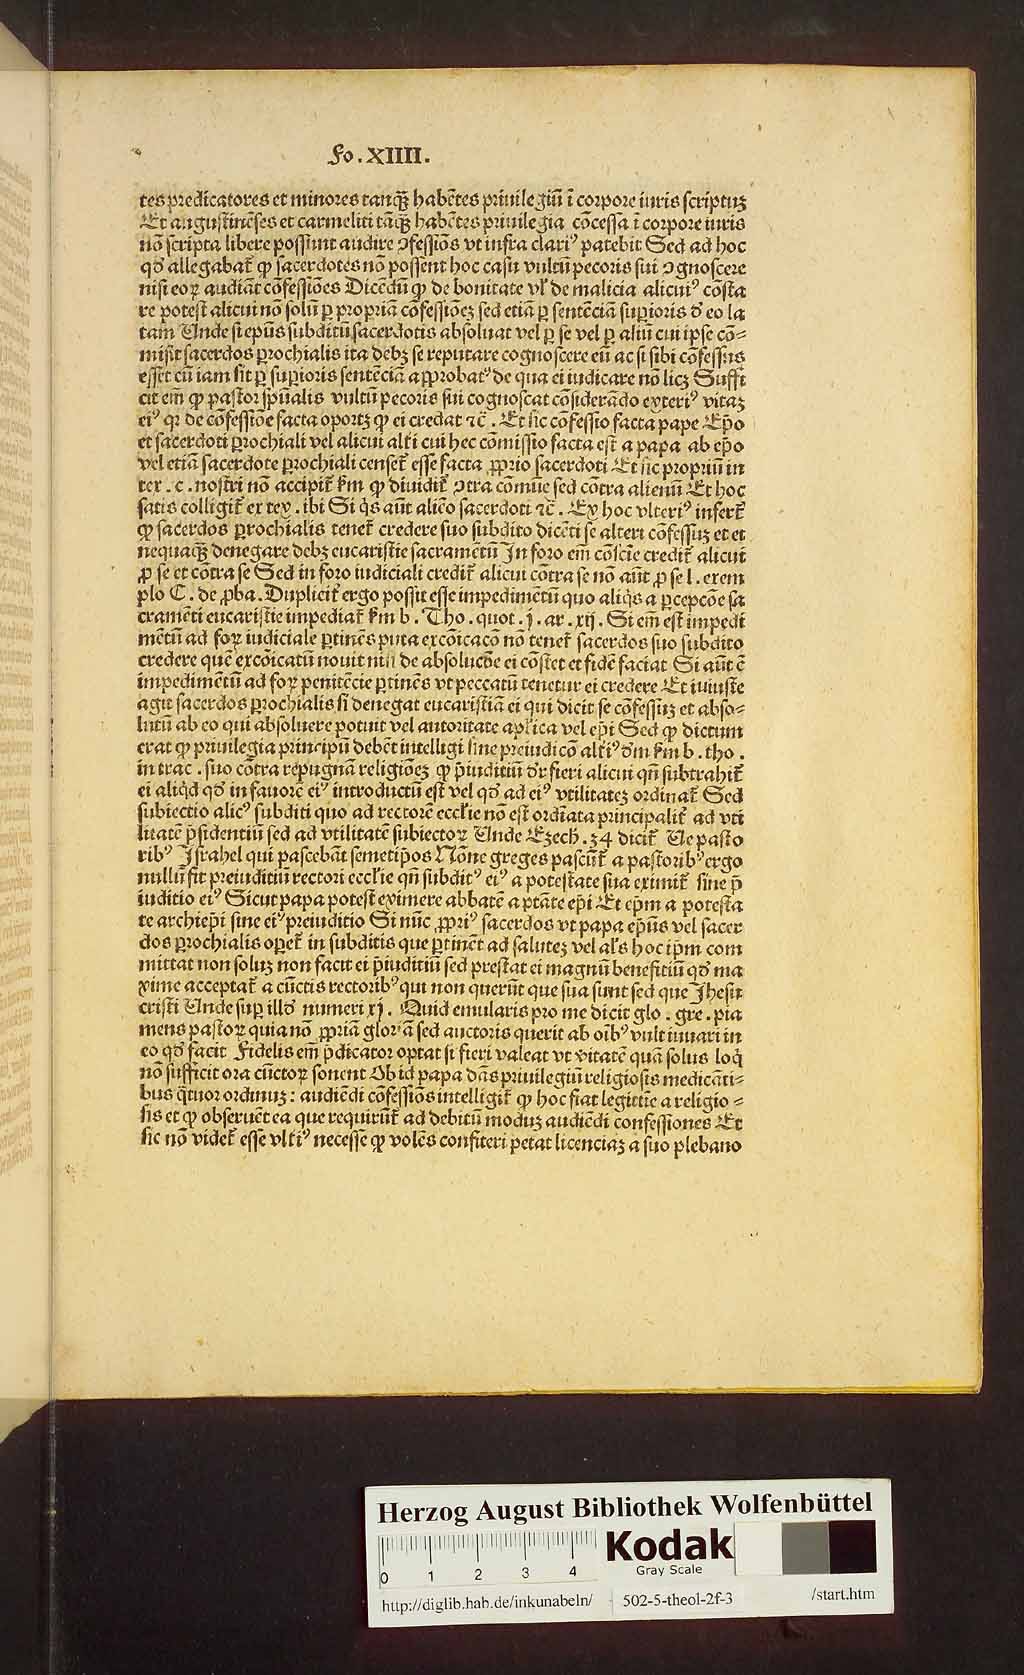 Fo. XIIII.
tes predicatores et minores tanqꝫ habētes priuilegiū ī corpore iuris scriptuꝫ
Et augustinēses et carmeliti tāqꝫ habētes priuilegia cōcessa ī corpore iuris
nō scripta libere possunt audire ꝯfessiōs vt infra clariꝰ patebit Sed ad hoc
qd̄ allegabat᷑ ꝙ sacerdotes nō possent hoc casu vultū pecoris sui ꝯgnoscere
nisi eoꝝ audiāt cōfessiōes Dicēdū ꝙ de bonitate vl̓ de malicia alicuiꝰ cōsta
re potest alicui nō solū ꝑ propriā cōfessiōeꝫ sed etiā ꝑ sentēciā suꝑioris d̓ eo la
tam Unde si epūs subditū sacerdotis absoluat vel ꝑ se vel ꝑ aliū cui ipse cō-
misit sacerdos ꝑrochialis ita debꝫ se reputare cognoscere eū ac si sibi cōfessus
esset cū iam sit ꝑ suꝑioris sentēciā aꝓrobatꝰ de qua ei iudicare nō licꝫ Suffi
cit em̄ ꝙ pastor spūalis vultū pecoris sui cognoscat cōsiderādo exteriꝰ vitaꝫ
eiꝰ qr de cōfessiōe facta oportꝫ ꝙ ei credat ⁊c̄. Et sic cōfessio facta pape Ep̄o
et sacerdoti ꝑrochiali vel alicui alt̓i cui hec cōmissio facta est a papa ab ep̄o
vel etiā sacerdote ꝑrochiali censet᷑ esse facta ꝓrio sacerdoti Et sic propriū in
tex. c. nostri nō accipit᷑ ẜm ꝙ diuidit᷑ ꝯtra cōmūe sed cōtra alienū Et hoc
satis colligit᷑ ex tex. ibi Si q̇s aūt aliēo sacerdoti ⁊c̄. Ex hoc vlteriꝰ infert᷑
ꝙ sacerdos ꝑrochialis tenet᷑ credere suo subdito dicēti se alteri cōfessuꝫ et et
nequaqꝫ denegare debꝫ eucaristie sacramētū In foro em̄ cōscie credit᷑ alicui
ꝓ se et cōtra se Sed in foro iudiciali credit᷑ alicui cōtra se nō aūt ꝓ se l. exem
plo C. de ꝓba. Duplicit᷑ ergo possit esse impedimētū quo aliq̇s a ꝑcepcōe sa
cramēti eucaristie impediat᷑ ẜm b. Tho. quot. j. ar. xij. Si em̄ est impedi
mētū ad foꝝ iudiciale ꝑtinēs puta excōicacō nō tenet᷑ sacerdos suo subdito
credere quē excōicatū nouit nisi de absolucōe ei cōstet et fidē faciat Si aūt ē
impedimētū ad foꝝ penitēcie ꝑtinēs vt peccatū tenetur ei credere Et iniuste
agit sacerdos ꝑrochialis si denegat eucaristiā ei qui dicit se cōfessuꝫ et abso-
lutū ab eo qui absoluere potuit vel autoritate apl̓ica vel ep̄i Sed ꝙ dictum
erat ꝙ priuilegia principū debēt intelligi sine preiudicō alt̓iꝰ d̓m ẜm b. tho.
in trac. suo cōtra repugnā religiōeꝫ ꝙ p̄iuditiū dr̄ fieri alicui qn̄ subtrahit᷑
ei aliq̇d qd̄ in fauorē eiꝰ introductū est vel qd̄ ad eiꝰ vtilitateꝫ ordinat᷑ Sed
subiectio alicꝰ subditi quo ad rectorē eccl̓ie nō est ordīata principalit᷑ ad vti
litatē p̄sidentiū sed ad vtilitatē subiectoꝝ Unde Ezech. 34 dicit᷑ Ue pasto
ribꝰ Israhel qui pascebāt semetip̄os Nōne greges pascūt᷑ a pastoribꝰ ergo
nullū fit preiuditiū rectori eccl̓ie qn̄ subditꝰ eiꝰ a potestate sua eximit᷑ sine p̄
iuditio eiꝰ Sicut papa potest eximere abbatē a ptāte ep̄i Et ep̄m a potesta
te archiep̄i sine eiꝰ preiuditio Si nūc ꝓpriꝰ sacerdos vt papa epūs vel sacer
dos ꝑrochialis oꝑet᷑ in subditis que ꝑtinēt ad saluteꝫ vel al̓s hoc ip̄m com
mittat non soluꝫ non facit ei p̄iuditiū sed prestat ei magnū benefitiū qd̄ ma
xime acceptat᷑ a cūctis rectoribꝰ qui non querūt que sua sunt sed que Jhesu
cristi Unde suꝑ illd̓ numeri xj. Quid emularis pro me dicit glo. gre. pia
mens pastoꝝ quia nō ꝓpriā gloriā sed auctoris querit ab oībꝰ vult iuuari in
eo qd̄ facit Fidelis em̄ p̄dicator optat si fieri valeat vt v̓itatē quā solus loq̇
nō sufficit ora cūctoꝝ sonent Ob id papa dās priuilegiū religiosis medicāti-
bus q̈tuor ordinuꝫ: audiēdi cōfessiōs intelligit᷑ ꝙ hoc fiat legittīe a religio-
sis et ꝙ obseruēt ea que requirūt᷑ ad debitū moduꝫ audiēdi confessiones Et
sic nō videt᷑ esse vlt̓iꝰ necesse ꝙ volēs confiteri petat licenciaꝫ a suo plebano
Herzog August Bibliothek Wolfenbüttel
Kodak
Gray Scale
0 1 2 3 4
http://diglib.hab.de/inkunabeln/ 502-5-theol-2f-3 /start.htm